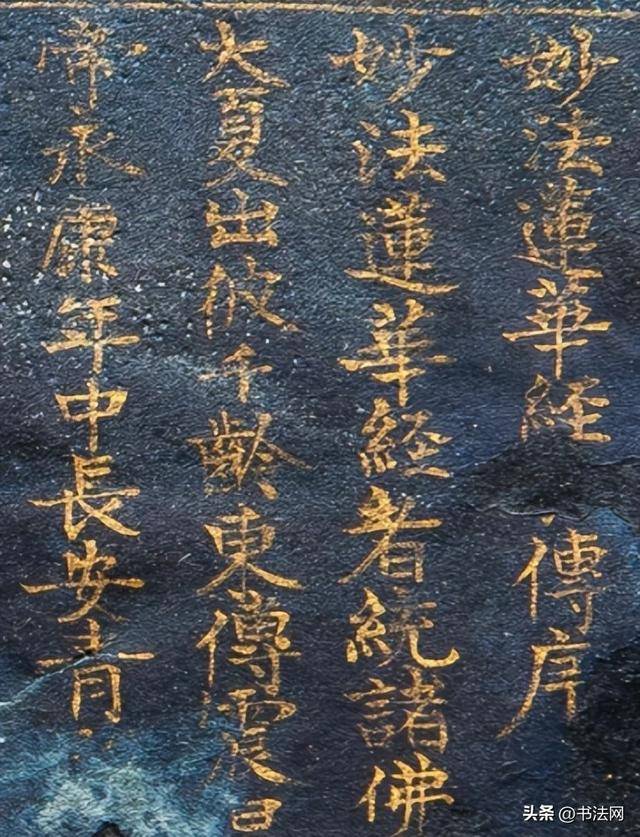 妙法蓮華経傳序
妙法蓮華経者統諸佛
大夏出彼千齡東傳震旦
帝永康年中長安青
头条 @书法网